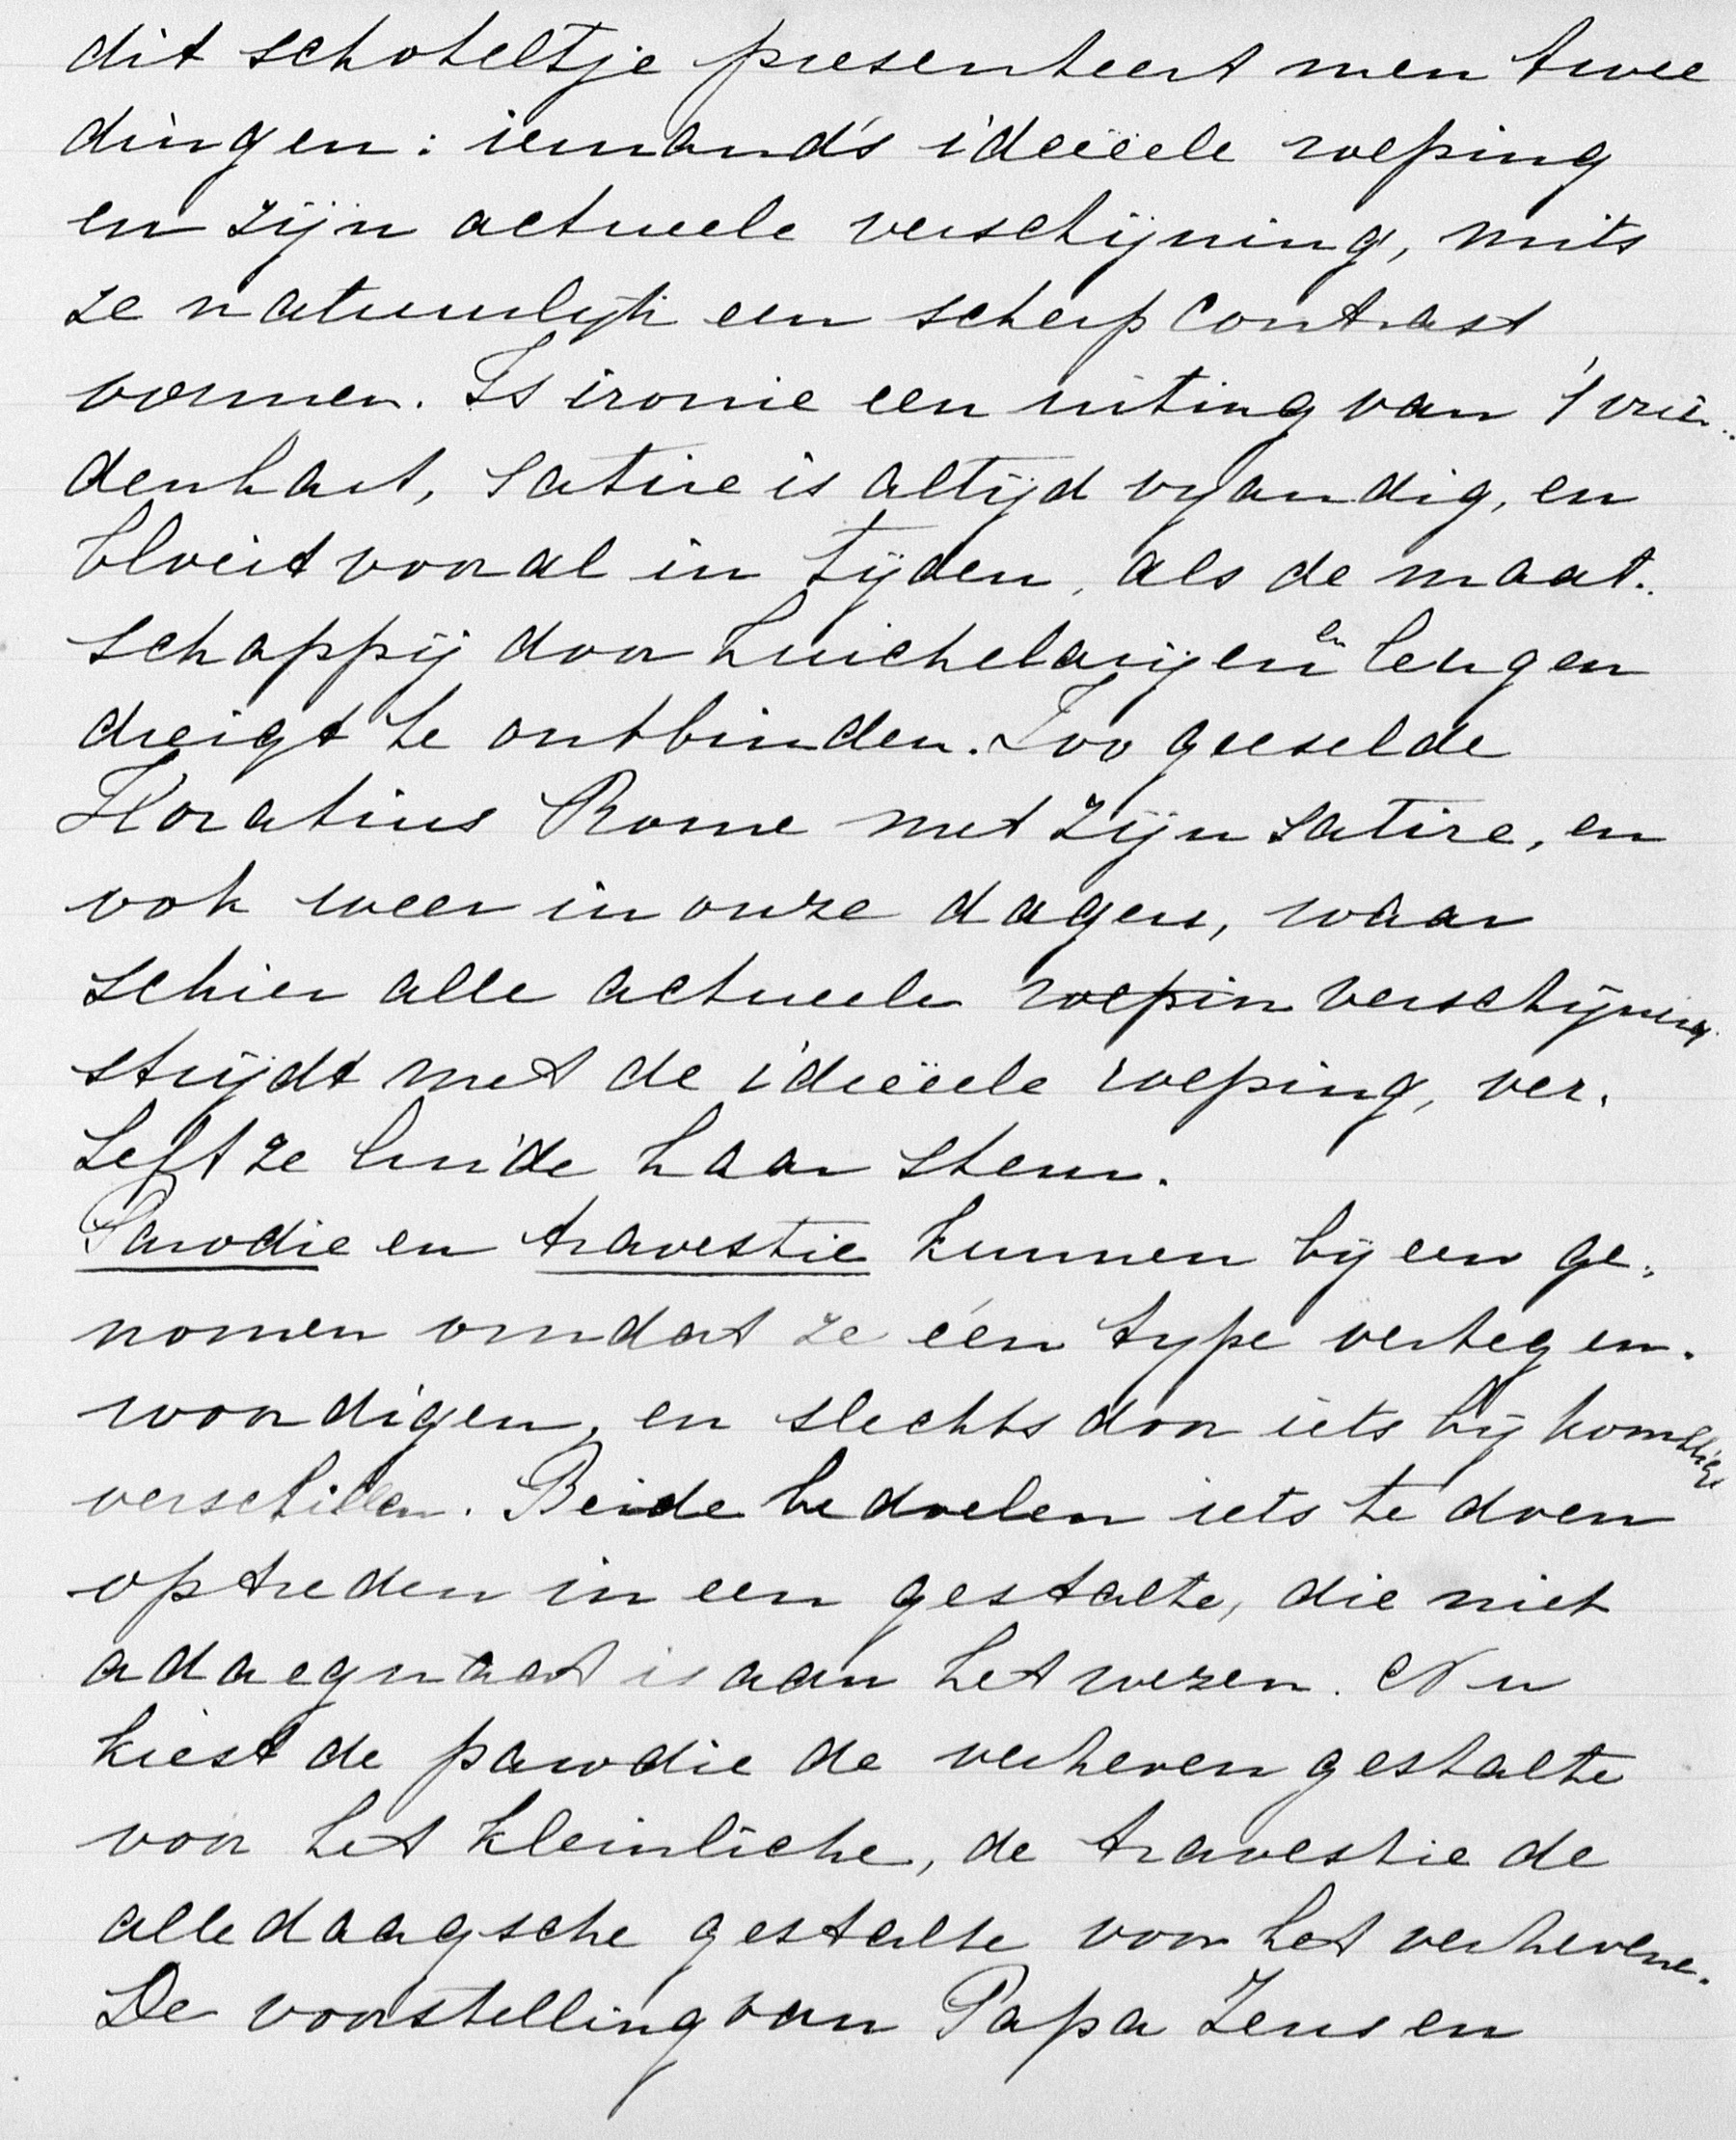 dit schoteltje presenteert men twee
dingen: iemand's ideëele roeping
en zijn actueele verschijning, mits
ze natuurlijk een scherp contrast
vormen. Is ironie een uiting van 't vrien-
denhart, satire is altijd vijandig, en
bloeit vooral in tijden, als de maat-
schappij door huichelarijen en leugen
dreigt te ontbinden. Zoo geeselde
Horatius Rome met zijn satire, en
ook weer in onze dagen, waar
schier alle actueele roepin verschijning
strijdt met de ideëele roeping, ver-
heft ze luide haar stem.
Parodie en travestie kunnen bijeen ge-
nomen omdat ze één type vertegen-
woordigen, en slechts door iets bijkomstigs
verschillen. Beide bedoelen iets te doen
optreden in een gestalte, die niet
adaequaat is aan het wezen. Nu
kiest de parodie de verheven gestalte
voor het kleinliche, de travestie de
alledaagsche gestalte voor het verhevene.
De voorstelling van Papa Zeus en